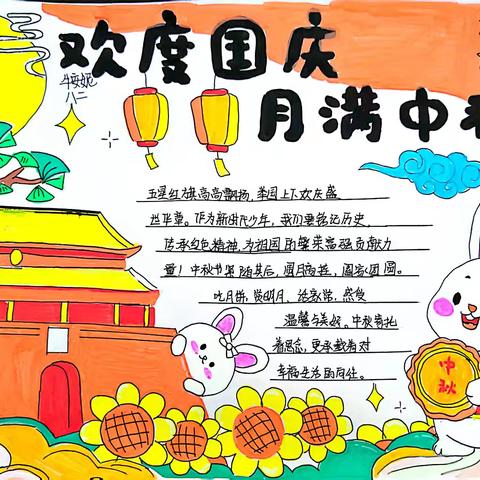 欢度国庆
月满中秋
八二
五星红旗高高飘扬，举国上下欢庆盛
世华章。作为新时代少年，我们要铭记历史，
传承红色精神，为祖国的繁荣富强贡献力
量！中秋节紧随其后，圆月高挂，阖家团圆。
吃月饼、赏明月、话家常，尽享
温馨与美好。中秋寄托
着思念，更承载着对
幸福生活的向往。
中秋